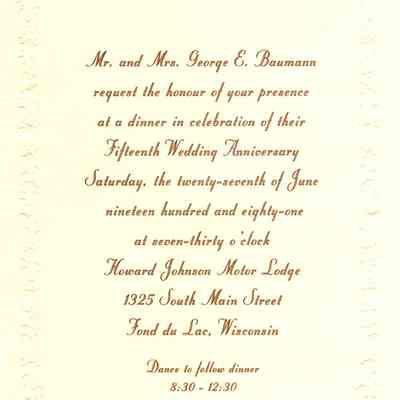 Mr. and Mrs. George E. Baumann
request the honour of your presence
at a dinner in celebration of their
Fifteenth Wedding Anniversary
Saturday, the twenty-seventh of June
nineteen hundred and eighty-one
at seven-thirty o'clock
Howard Johnson Motor Lodge
1325 South Main Street
Fond du Lac, Wisconsin
Dance to follow dinner
8:30 - 12:30